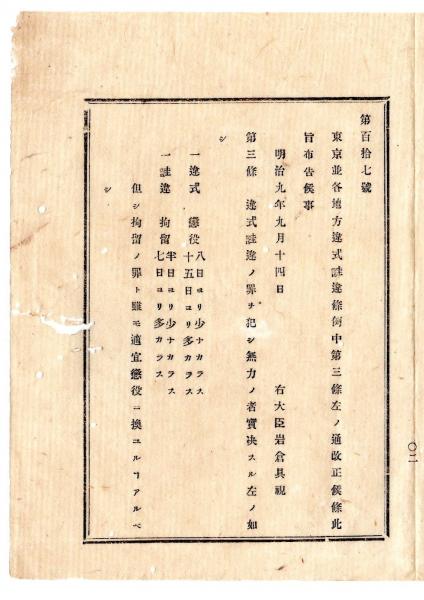 第百拾七號
東京並各地方違式詿違條例中第三條左ノ通改正候條此
旨布告候事
明治九年九月十四日
右大臣岩倉具視
第三條 違式詿違ノ罪ヲ犯シ無力ノ者實决スル左ノ如
シ
一違式 懲役 八日ヨリ少ナカラス
十五日ヨリ多カラス
一詿違 拘留 半日ヨリ少ナカラス
七日ヨリ多カラス
但シ拘留ノ罪ト雖モ適宜懲役ニ換ユルヿアルベ
シ
〇二